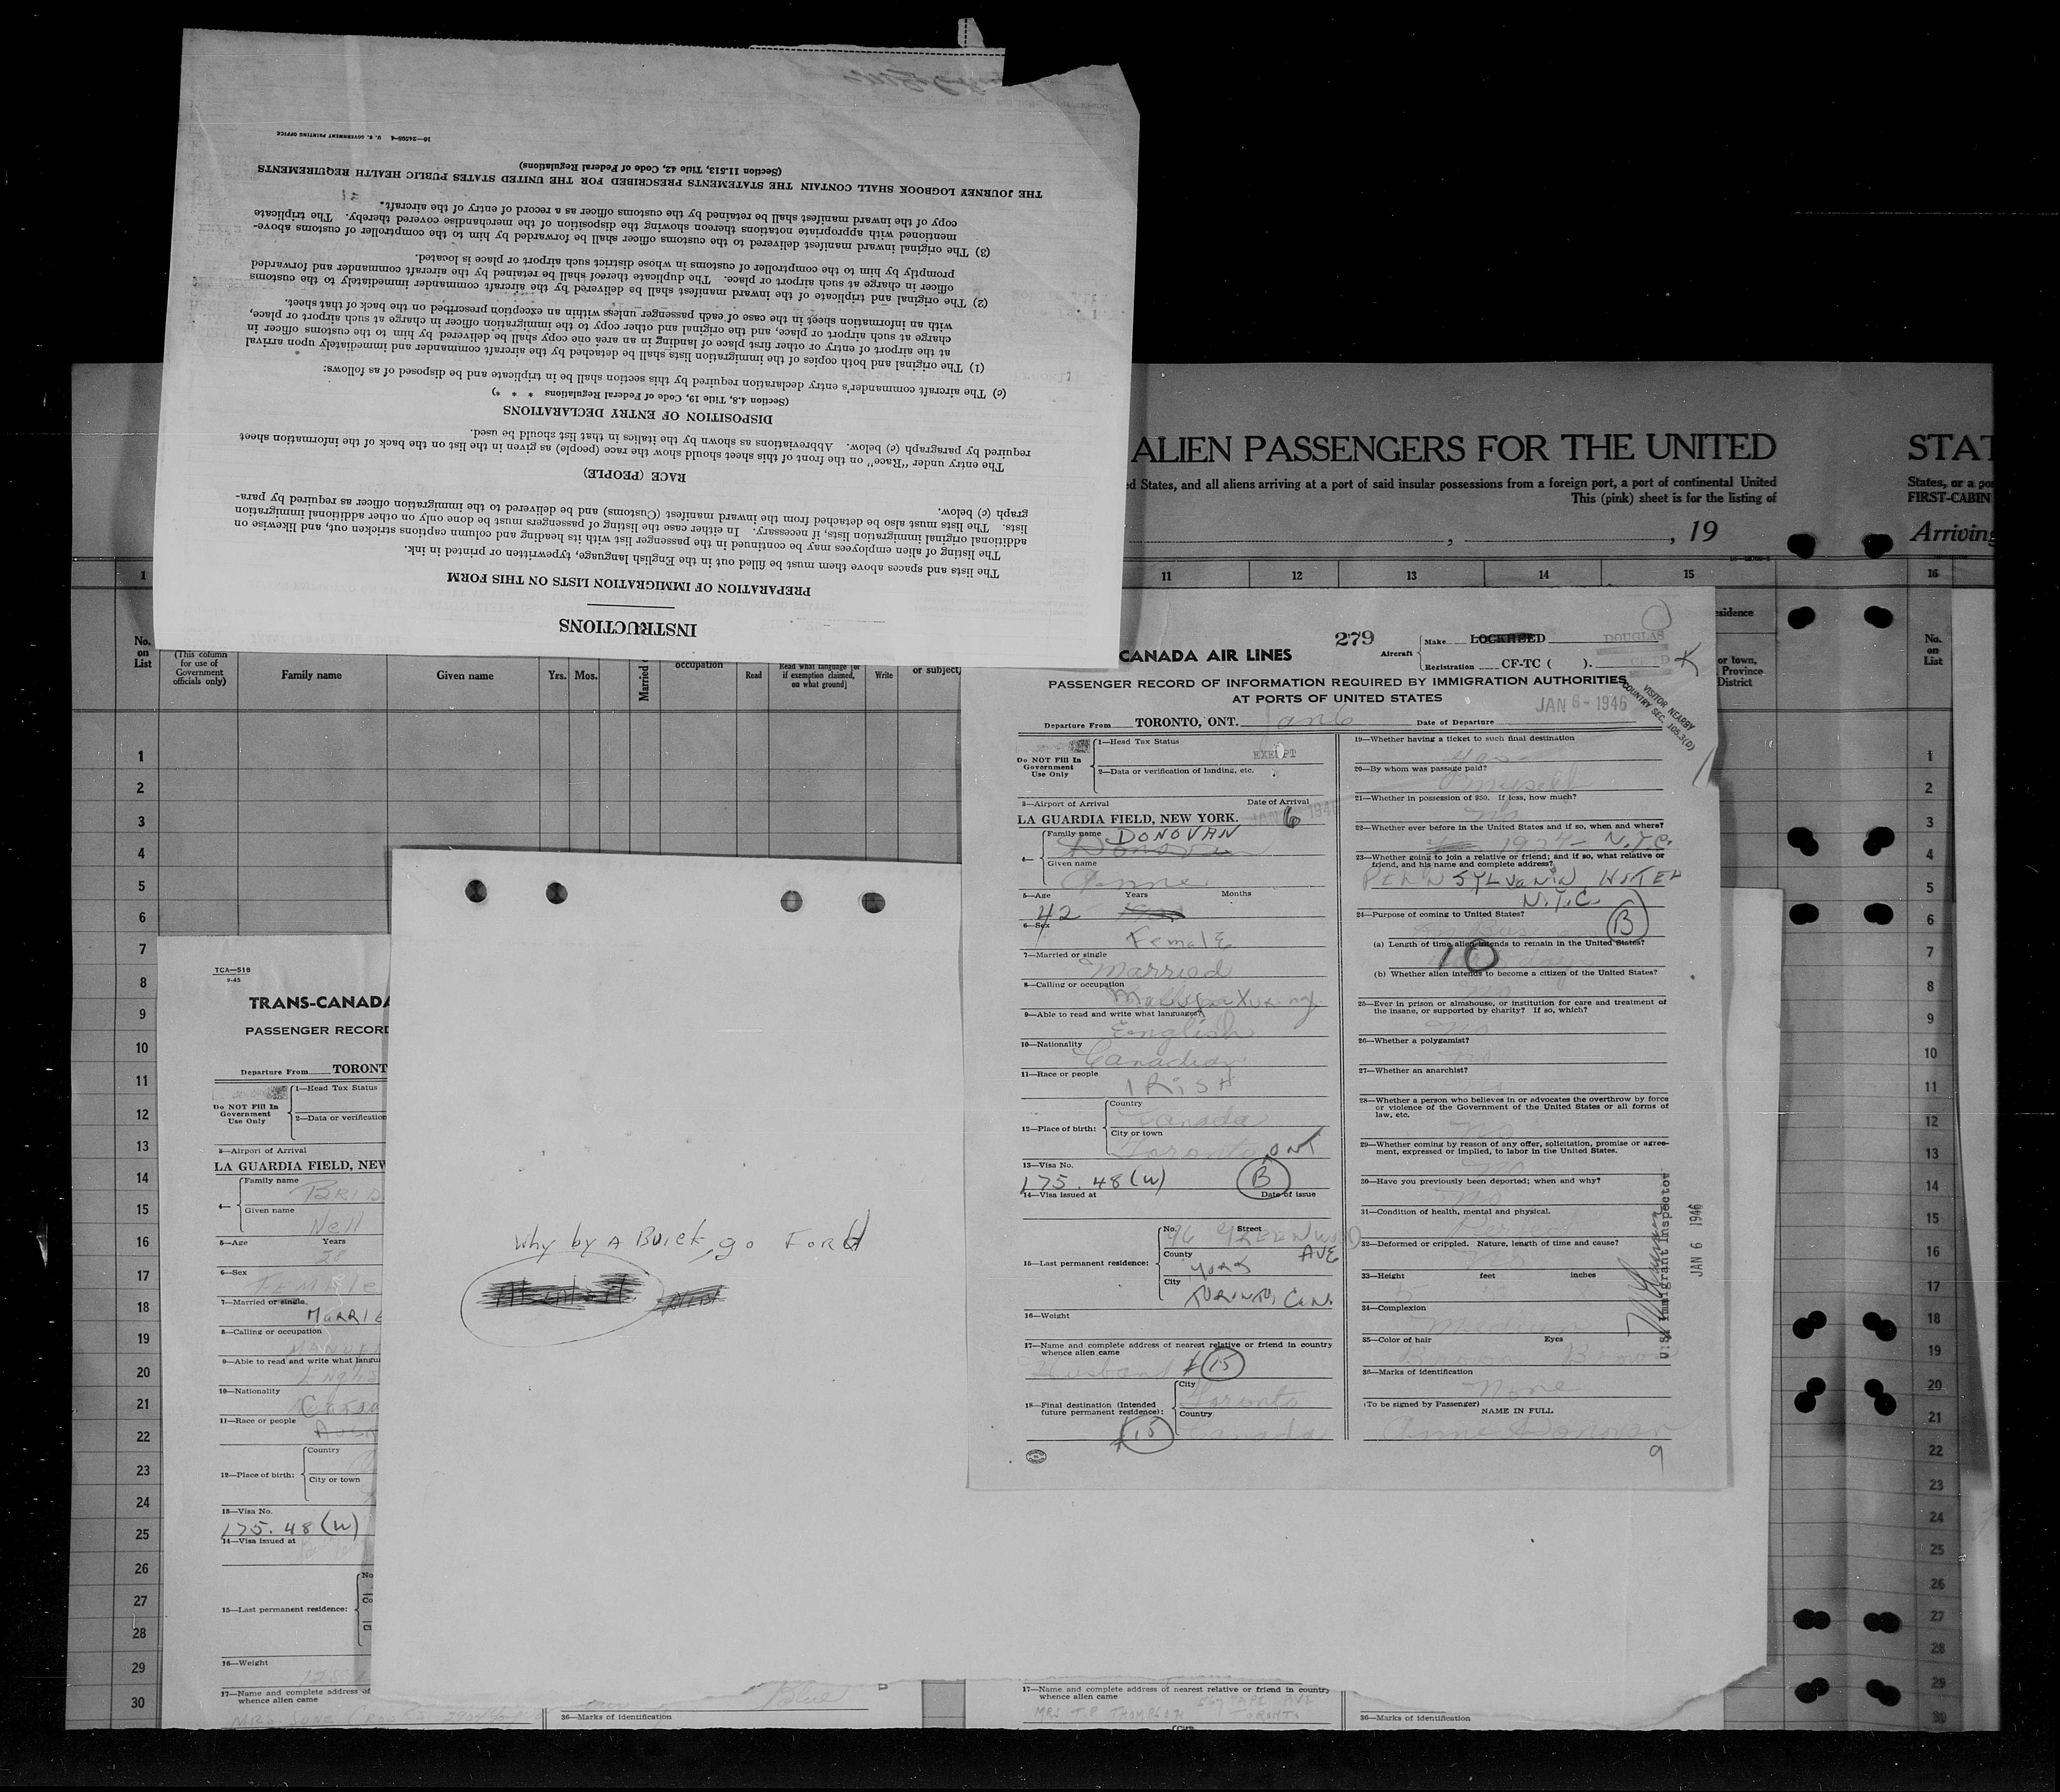 INSTRUCTIONS
PREPARATION OF IMMIGRATION LISTS ON THIS FORM
The lists and spaces above them must be filled out in the English language, typewritten or printed in ink.
The listing of alien employees may be continued in the passenger list with its heading and column captions stricken out, and likewise on
additional original immigration lists, if necessary. In either case the listing of passengers must be done only on other additional immigration
lists. The lists must also be detached from the inward manifest (Customs) and be delivered to the immigration officer as required by para-
graph (c) below.
RACE (PEOPLE)
The entry under "Race" on the front of this sheet should show the race (people) as given in the list on the back of the information sheet
required by paragraph (c) below. Abbreviations as shown by the italics in that list should be used.
DISPOSITION OF ENTRY DECLARATIONS
(Section 4.8, Title 19, Code of Federal Regulations * * *)
(c) The aircraft commander's entry declaration required by this section shall be in triplicate and be disposed of as follows:
(1) The original and both copies of the immigration lists shall be detached by the aircraft commander and immediately upon arrival
at the airport of entry or other first place of landing in an area one copy shall be delivered by him to the customs officer in
charge at such airport or place, and the original and other copy to the immigration officer in charge at such airport or place,
with an information sheet in the case of each passenger unless within an exception prescribed on the back of that sheet.
(2) The original and triplicate of the inward manifest shall be delivered by the aircraft commander immediately to the customs
officer in charge at such airport or place. The duplicate thereof shall be retained by the aircraft commander and forwarded
promptly by him to the comptroller of customs in whose district such airport or place is located.
(3) The original inward manifest delivered to the customs officer shall be forwarded by him to the comptroller of customs above-
mentioned with appropriate notations thereon showing the disposition of the merchandise covered thereby. The triplicate
copy of the inward manifest shall be retained by the customs officer as a record of entry of the aircraft.
THE JOURNEY LOGBOOK SHALL CONTAIN THE STATEMENTS PRESCRIBED FOR THE UNITED STATES PUBLIC HEALTH REQUIREMENTS
(Section 11.513, Title 42, Code of Federal Regulations)
16—24598-4 U. S. GOVERNMENT PRINTING OFFICE
ALIEN PASSENGERS FOR THE UNITED
States, and all aliens arriving at a port of said insular possessions from a foreign port, a port of continental United
This (pink) sheet is for the listing of
, , 19
STAT
States, or a
FIRST-CABIN
Arriving
1 11 12 13 14 15 16
No. on List
(This column for use of Government officials only)
Family name
Given name
Yrs. Mos.
Married
occupation
Read
Read what language [or if exemption claimed, on what ground]
Write
or subject
or town,
Province
District
No. on List
1
2
3
4
5
6
7
8
9
10
11
12
13
14
15
16
17
18
19
20
21
22
23
24
25
26
27
28
29
30
CANADA AIR LINES
279
Aircraft
Make LOCKHEED DOUGLAS
Registration CF-TC ( ).
K
PASSENGER RECORD OF INFORMATION REQUIRED BY IMMIGRATION AUTHORITIES
AT PORTS OF UNITED STATES
VISITOR NEARBY
COUNTRY SEC. 105.3(D)
Departure From TORONTO, ONT. Jan 6 Date of Departure JAN 6 - 1946
Do NOT Fill In Government Use Only
1—Head Tax Status EXEMPT
2—Data or verification of landing, etc.
3—Airport of Arrival Date of Arrival
LA GUARDIA FIELD, NEW YORK. JAN 6 1946
4— Family name DONOVAN
Given name Anne
5—Age Years Months
42
6—Sex Female
7—Married or single Married
8—Calling or occupation
9—Able to read and write what languages? English
10—Nationality Canadian
11—Race or people IRISH
12—Place of birth: Country Canada
City or town Toronto ONT
13—Visa No.
175.48(W) B
14—Visa issued at Date of issue
15—Last permanent residence: No. 96 Street GREENWOOD AVE
County YORK
City TORONTO, CAN.
16—Weight
17—Name and complete address of nearest relative or friend in country whence alien came
Husband 15
18—Final destination (Intended future permanent residence): City Toronto
Country Canada
15
19—Whether having a ticket to such final destination
Yes
20—By whom was passage paid?
Myself
21—Whether in possession of $50. If less, how much?
22—Whether ever before in the United States and if so, when and where?
N.Y.C.
23—Whether going to join a relative or friend; and if so, what relative or friend, and his name and complete address?
PENNSYLVANIA HOTEL
N.Y.C.
24—Purpose of coming to United States?
B
(a) Length of time alien intends to remain in the United States?
10 days
(b) Whether alien intends to become a citizen of the United States?
No
25—Ever in prison or almshouse, or institution for care and treatment of the insane, or supported by charity? If so, which?
No
26—Whether a polygamist?
No
27—Whether an anarchist?
No
28—Whether a person who believes in or advocates the overthrow by force or violence of the Government of the United States or all forms of law, etc.
No
29—Whether coming by reason of any offer, solicitation, promise or agreement, expressed or implied, to labor in the United States.
No
30—Have you previously been deported; when and why?
No
31—Condition of health, mental and physical.
32—Deformed or crippled. Nature, length of time and cause?
33—Height feet inches
34—Complexion
Medium
35—Color of hair Eyes
Brown Brown
36—Marks of identification
None
(To be signed by Passenger) NAME IN FULL
Anne Donovan
9
U.S. Immigrant Inspector
JAN 6 1946
why by A Buick, go FORd
TCA—518
9-45
TRANS-CANADA
PASSENGER RECORD
Departure From TORONT
Do NOT Fill In Government Use Only
1—Head Tax Status
2—Data or verification
3—Airport of Arrival
LA GUARDIA FIELD, NEW
4— Family name
Given name Nell
5—Age Years
38
6—Sex FEMALE
7—Married or single MARRIE
8—Calling or occupation
9—Able to read and write what langu
Englis
10—Nationality
11—Race or people
12—Place of birth: Country
City or town
13—Visa No.
175.48(W)
14—Visa issued at
15—Last permanent residence:
16—Weight
17—Name and complete address of
whence alien came
Blue
36—Marks of identification
17—Name and complete address of nearest relative or friend in country whence alien came
MRS T.P. THOMPSON 567 PAPE AVE
TORONTO
36—Marks of identification